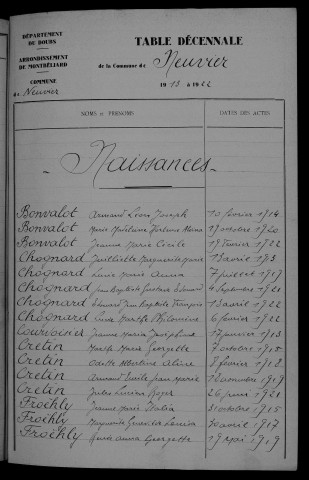 DÉPARTEMENT
DU DOUBS
ARRONDISSEMENT
DE MONTBÉLIARD
COMMUNE
de Neuvier
TABLE DÉCENNALE
de la Commune de Neuvier
1913 à 1922
NOMS et PRÉNOMS DATES DES ACTES
Naissances
Bonvalot Armand Léon Joseph 10 février 1914
Bonvalot Marie Madelaine 17 octobre 1920
Bonvalot Jeanne Marie Cécile 19 février 1922
Chognard Marguerite Marie 13 avril
Chognard Lucie Marie Anna 7 juillet 1917
Chognard Jean Baptiste Gustave Edouard 4 septembre 1921
Chognard Edouard Jean Baptiste François 13 avril 1922
Chognard Marthe Philomène 6 février 1922
Courvoisier Jeanne Maria Joséphine 17 janvier 1913
Cretin Marthe Marie Georgette 7 octobre 1915
Cretin Odette Albertine Aline février 1918
Cretin Armand Emile Jean Marie 12 novembre 1919
Cretin Jules Lucien Roger 26 1921
Froehly Jeanne Marie 31 octobre 1915
Froehly Marguerite 1917
Froehly Marie Anna Georgette 19 mai 1919